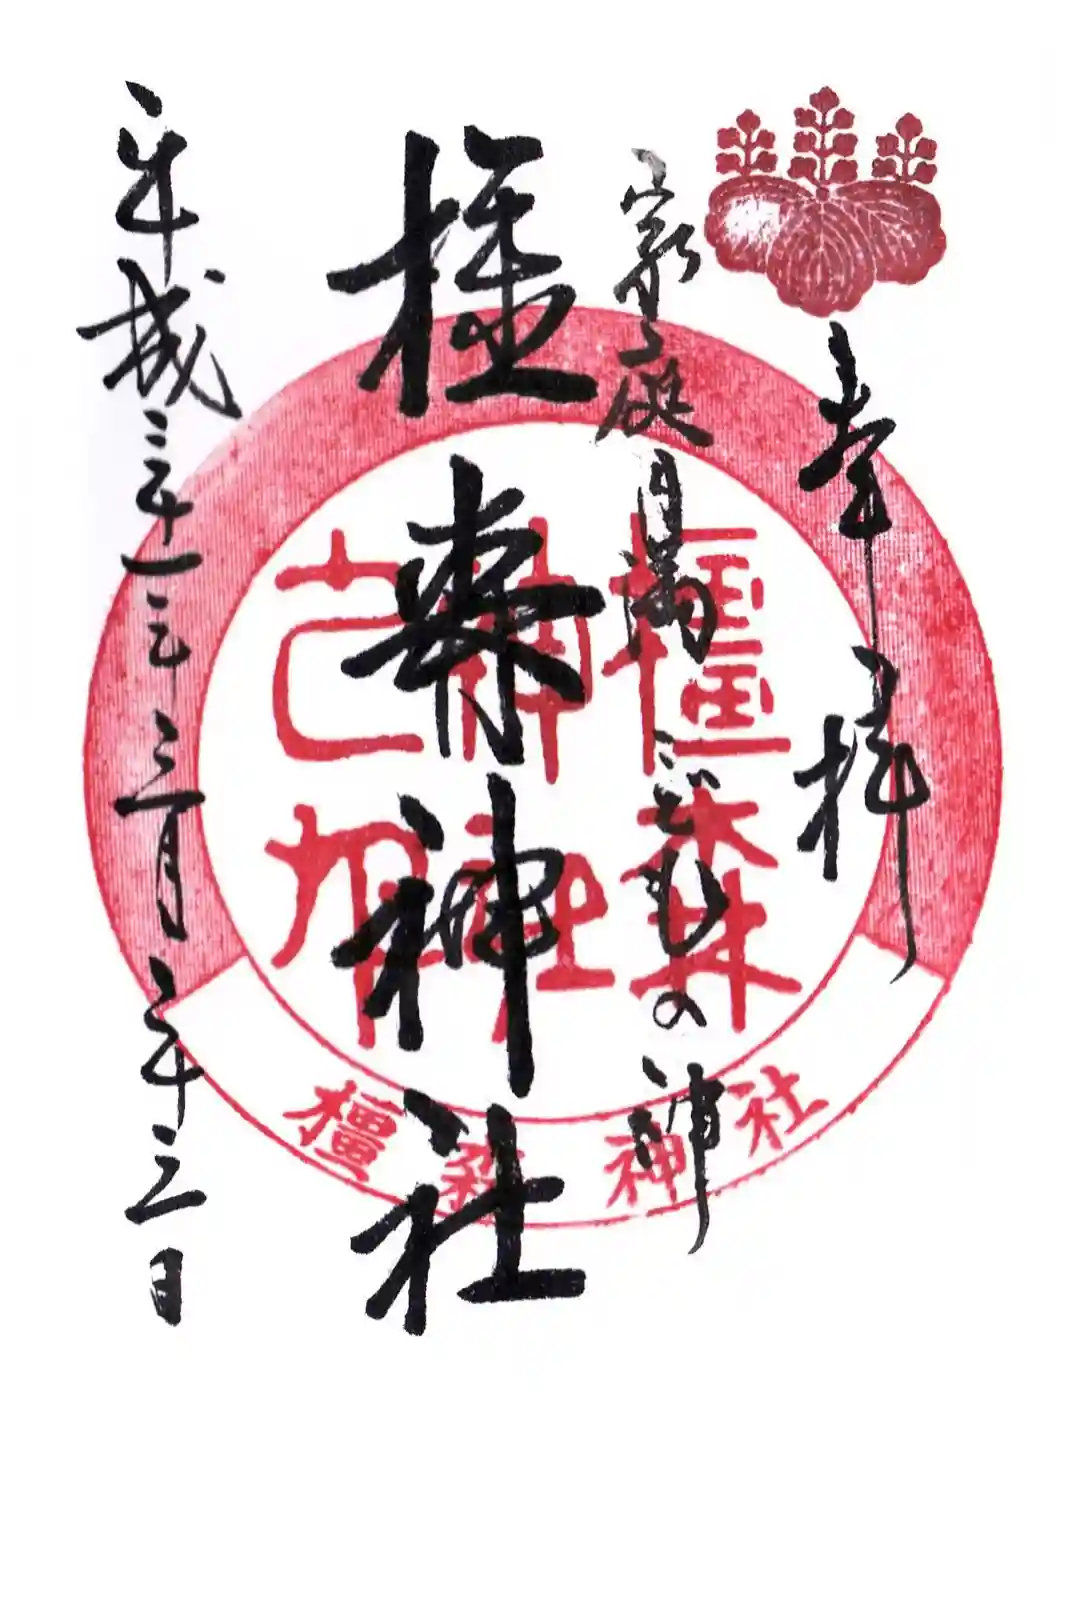 奉拝
家庭円満こどもの神
橿森神社
平成三十一年三月二十三日
橿森
神社
橿森神社